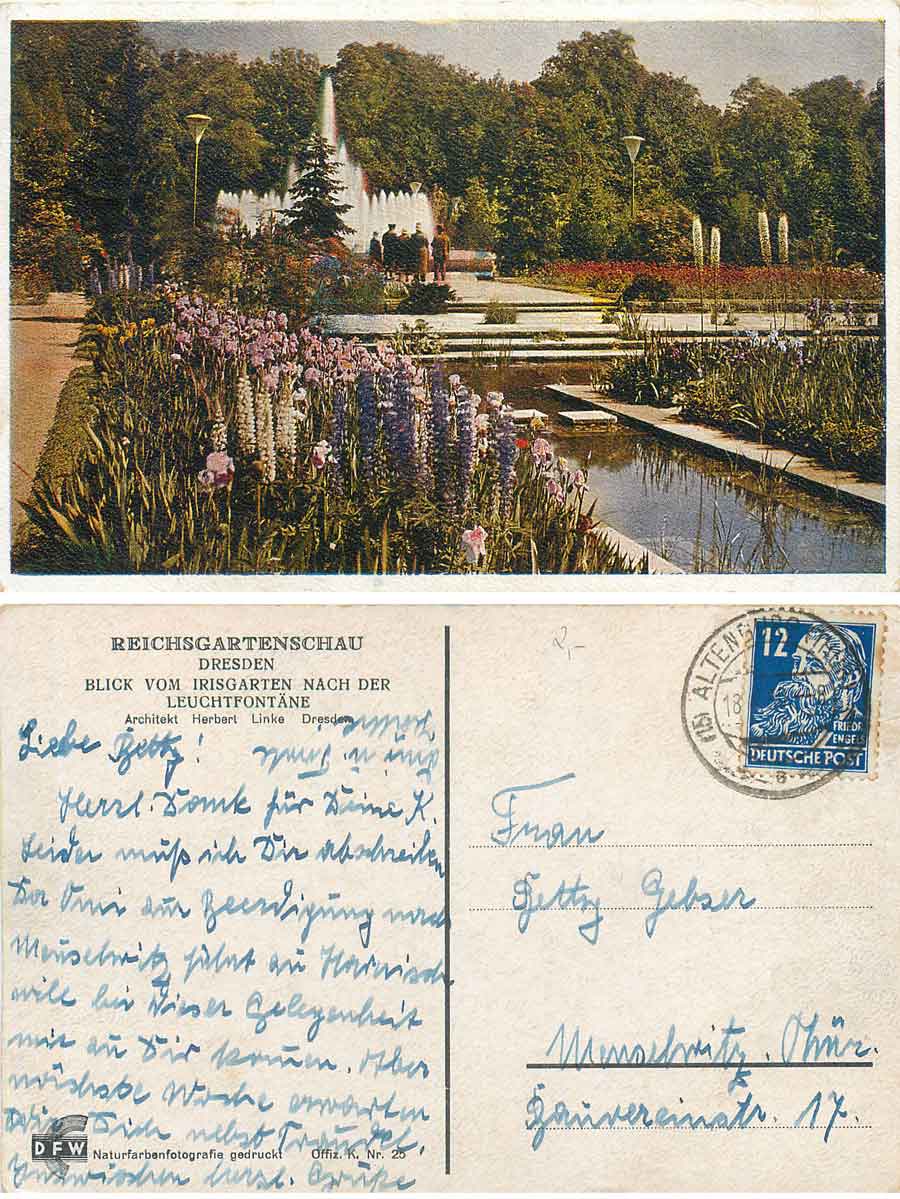 REICHSGARTENSCHAU
DRESDEN
BLICK VOM IRISGARTEN NACH DER
LEUCHTFONTÄNE
Architekt Herbert Linke Dresden
Liebe Hetty!
Herzl. Dank für Deine K.
Leider muß ich Dir abschreiben
Da Omi zur Beerdigung nach
Meuselwitz fährt zu
will bei dieser Gelegenheit
mit zu Dir kommen. Aber
nächste Woche erwarten
wir Dich nebst Traudel.
Inzwischen herzl. Grüße
DFW
Naturfarbenfotografie gedruckt Offiz. K. Nr. 25
(15) ALTENBURG
12
FRIEDR.
ENGELS
DEUTSCHE POST
Frau
Hetty Gebser
Meuselwitz. Thür.
Bauvereinstr. 17.